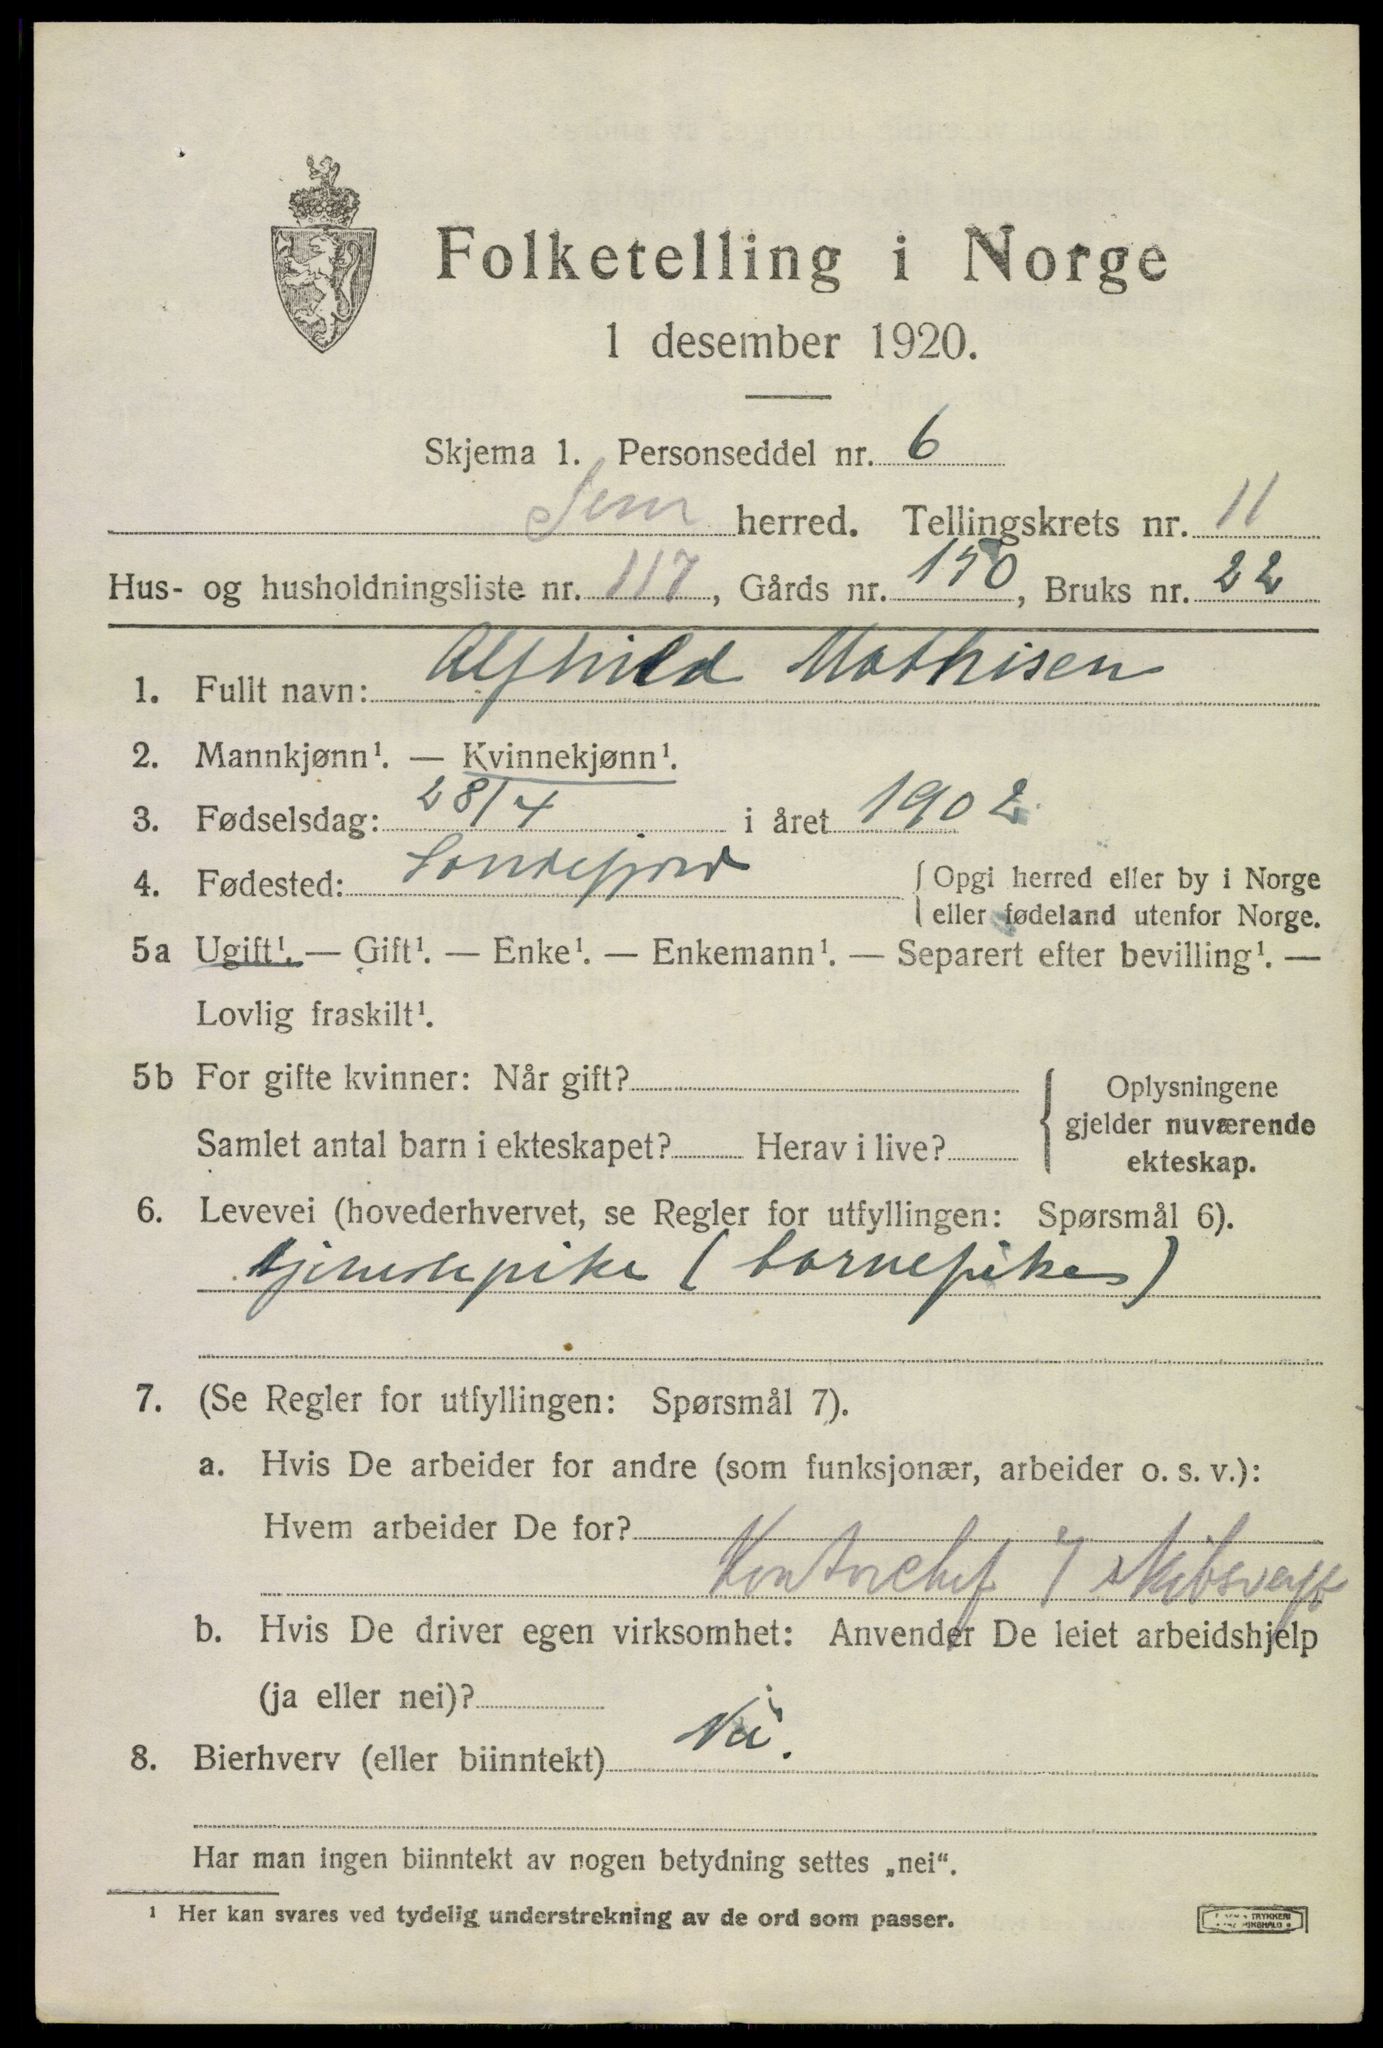 Folketelling i Norge
1 desember 1920.
Skjema 1. Personseddel nr. 6
Sem herred. Tellingskrets nr. 11
Hus- og husholdningsliste nr. 117, Gårds nr. 150, Bruks nr. 22
1. Fullt navn: Alfhild Mathisen
2. Mannkjønn¹. — Kvinnekjønn¹.
3. Fødselsdag: 28/4 i året 1902
4. Fødested: Sandefjord { Opgi herred eller by i Norge
eller fødeland utenfor Norge.
5a Ugift¹. — Gift¹. — Enke¹. — Enkemann¹. — Separert efter bevilling¹. —
Lovlig fraskilt¹.
5b For gifte kvinner: Når gift?
Samlet antal barn i ekteskapet? Herav i live?
{ Oplysningene
gjelder nuværende
ekteskap.
6. Levevei (hovederhvervet, se Regler for utfyllingen: Spørsmål 6).
tjenestepike (barnepike)
7. (Se Regler for utfyllingen: Spørsmål 7).
a. Hvis De arbeider for andre (som funksjonær, arbeider o. s. v.):
Hvem arbeider De for?
Kontorchef v/ skibsverft
b. Hvis De driver egen virksomhet: Anvender De leiet arbeidshjelp
(ja eller nei)?
8. Bierhverv (eller biinntekt) Nei.
Har man ingen biinntekt av nogen betydning settes „nei“.
¹ Her kan svares ved tydelig understrekning av de ord som passer.